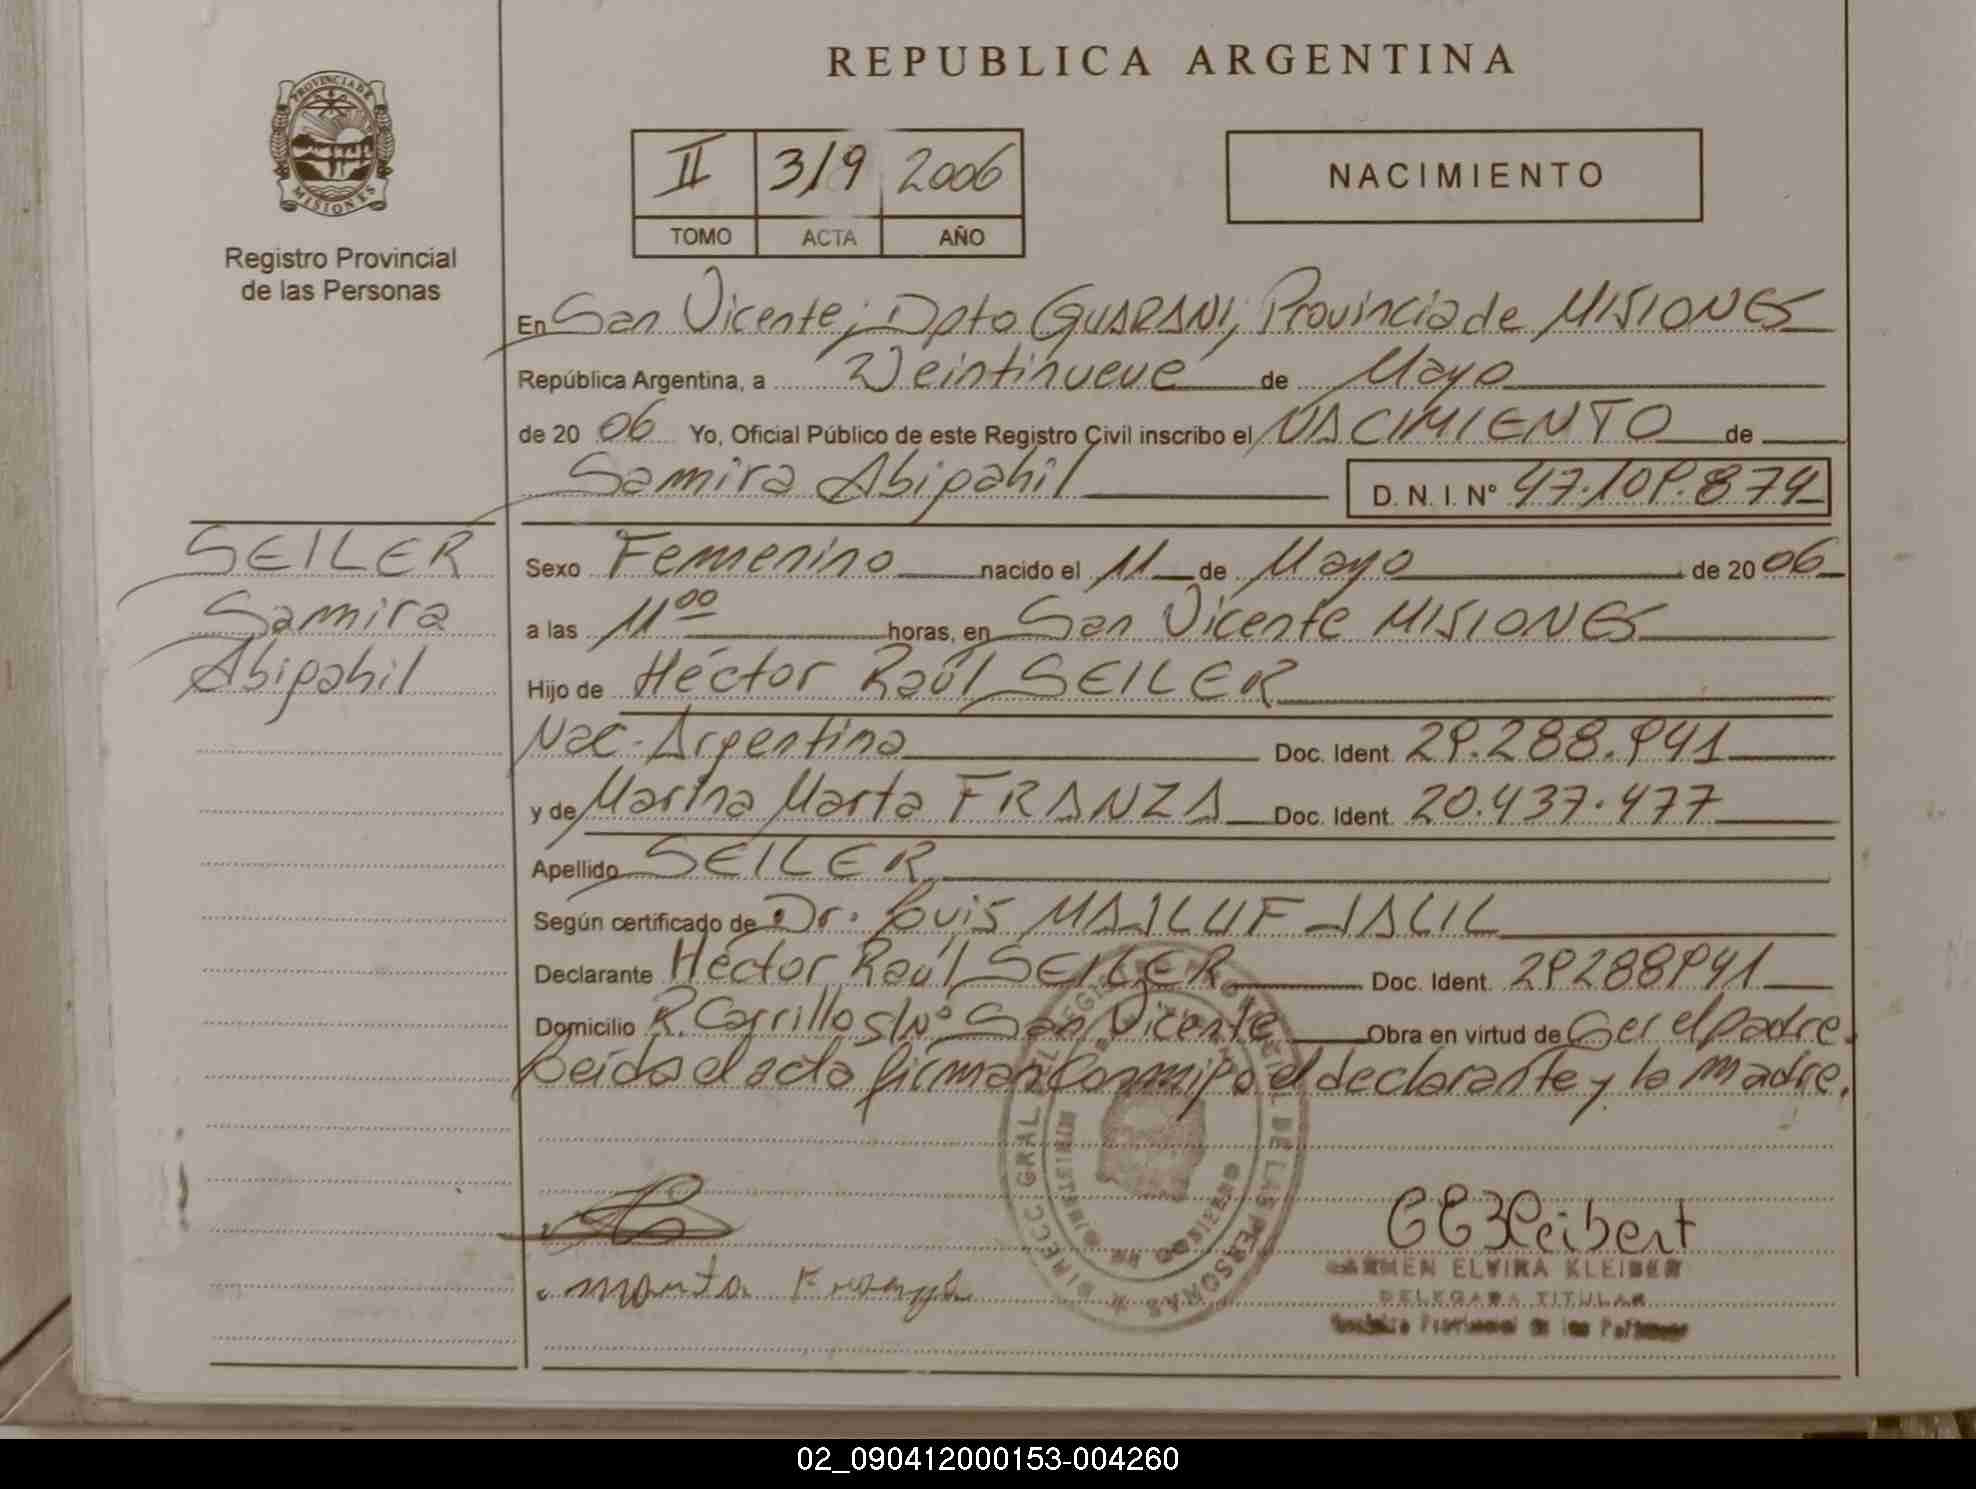 REPUBLICA ARGENTINA
PROVINCIA DE
MISIONES
Registro Provincial
de las Personas
II 319 2006
TOMO ACTA AÑO
NACIMIENTO
En San Vicente, Dpto GUARANI, Provincia de MISIONES
República Argentina, a Veintinueve de Mayo
de 2006 Yo, Oficial Público de este Registro Civil inscribo el NACIMIENTO de
Samira Abigahil D. N. I. N° 47.109.874
SEILER
Samira
Abigahil
Sexo Femenino nacido el 11 de Mayo de 2006
a las 11 00 horas, en San Vicente MISIONES
Hijo de Héctor Raúl SEILER
Nac. Argentina Doc. Ident. 29.288.941
y de Marina Marta FRANZA Doc. Ident. 20.437.477
Apellido SEILER
Según certificado de Dr. Louis MAJLUF JALIL
Declarante Héctor Raúl SEILER Doc. Ident. 29288941
Domicilio R. Carrillo s/Nº San Vicente Obra en virtud de Ser el padre.
Leída el acta firman Conmigo el declarante y la madre.
DIRECC GRAL DEL REGISTRO PROVINCIAL DE LAS PERSONAS
MINISTERIO DE GOBIERNO
marta Franza
CEKleibert
CARMEN ELVIRA KLEIBER
DELEGADA TITULAR
Registro Provincial de las Personas
02_090412000153-004260